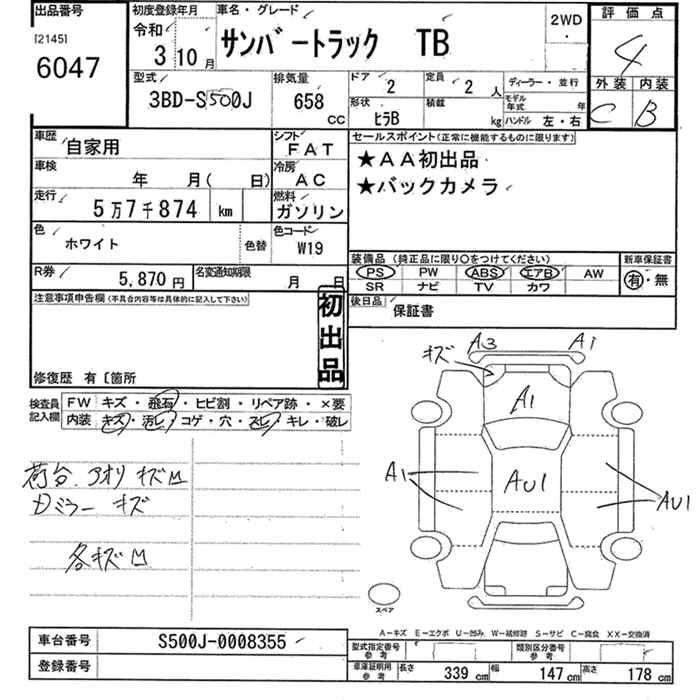 出品番号
[2145]
6047
初度登録年月
令和
3 10月
車名・グレード
サンバートラック TB
2WD
評価点
4
外装 内装
C B
型式
3BD-S500J
排気量
658
CC
ドア
2
定員
2 人
ディーラー・並行
形状
ヒラB
積載
kg
モデル年式
年
ハンドル 左・右
車歴
自家用
シフト
FAT
車検
年 月( 日)
冷房
AC
走行
5万7千874 km
燃料
ガソリン
色
ホワイト
色替
色コード
W19
R券
5,870円
名変通知期限
月 日
セールスポイント(正常に機能するものに限ります)
★AA初出品
★バックカメラ
装備品(純正品に限り○をつけてください)
新車保証書
PS PW ABS エアB AW
SR ナビ TV カワ
有・無
後日品
保証書
注意事項申告欄(不具合内容等は具体的に記入して下さい)
初出品
修復歴 有〔箇所
検査員記入欄
FW キズ・飛石・ヒビ割・リペア跡・×要
内装 キズ・汚レ・コゲ・穴・スレ・キレ・破レ
荷台.アオリ キズ凹
Dミラー キズ
各キズ凹
キズ A3 A1
A1
A1 AU1
AU1
スペア
A-キズ E-エクボ U-凹み W-補修跡 S-サビ C-腐食 XX-交換済
車台番号
S500J-0008355
登録番号
型式指定番号
参考
類別区分番号
参考
車庫証明用
参考
長さ 339cm 幅 147cm 高さ 178cm